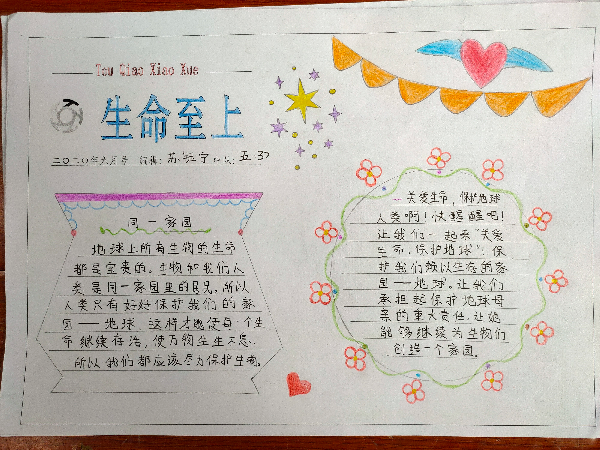 Tou Qiao Xiao Xue
生命至上
二〇二〇年九月 编辑: 苏 宇 五.3
同一家园
地球上所有生物的生命
都是宝贵的。生物和我们人
类是同一家园里的兄弟,所以
人类只有好好保护我们的家
园——地球,这样才能使每个生
命继续存活,使万物生生不息。
所以我们都应该尽力保护生命。
关爱生命,保护地球
人类啊!快醒醒吧!
让我们一起来“关爱
生命,保护地球”。保
护我们赖以生存的家
园——地球。让我们
承担起保护地球母
亲的重大责任,让她
能够继续为生物们
创造一个家园。